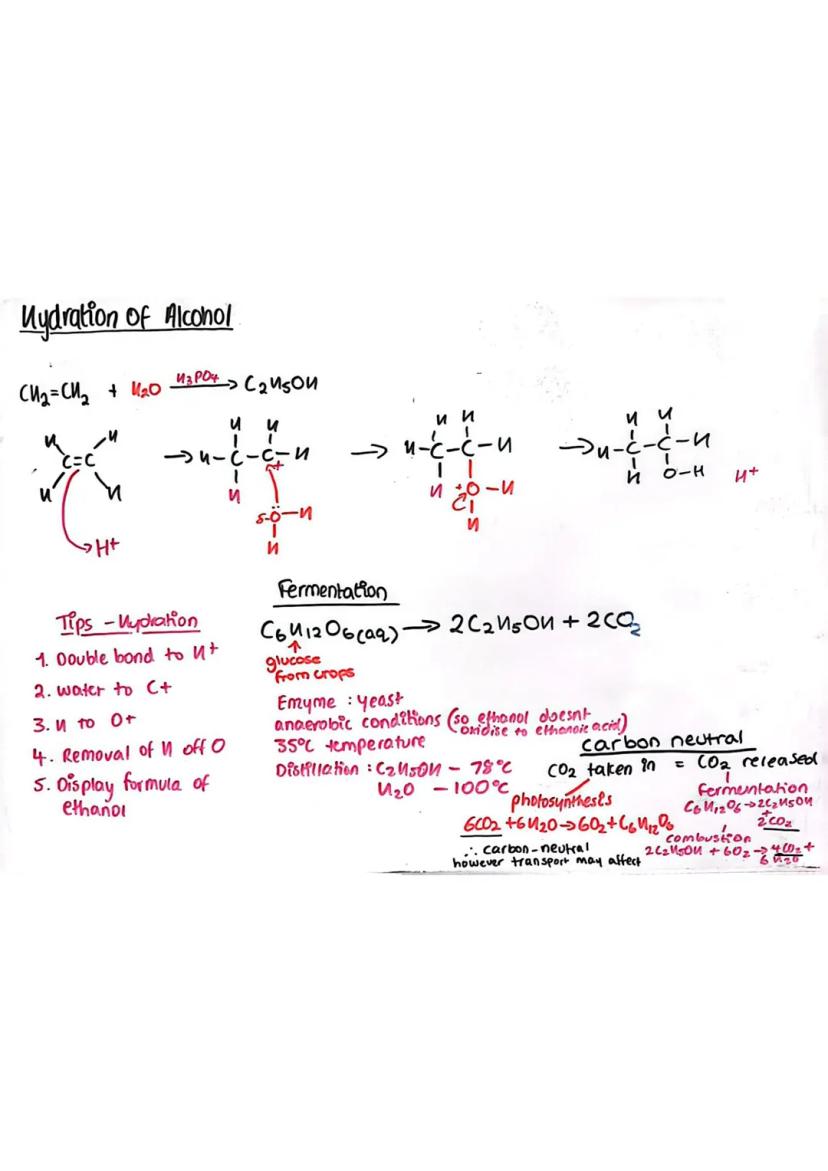 Hydration of Alcohol
CH2=CH2 + H2O H3PO4 → C2H5OH
H H H H H H H H
C=C → H-C-C-H → H-C-C-H → H-C-C-H
H H + H +O-H H O-H H+
H
δ-O-H
H
→H+
Fermentation
C6H12O6(aq) → 2C2H5OH + 2CO2
glucose
from crops
Tips - Hydration
1. Double bond to H+
2. water to C+
3. H to O+
4. Removal of H off O
5. Display formula of
ethanol
Emyme : yeast
anaerobic conditions (so ethanol doesnt
oxidise to ethanoic acid)
35°C temperature
Distillation : C2H5OH - 78°C
H2O - 100°C
carbon neutral
CO2 taken in = CO2 released
photosynthesis
6CO2 + 6H2O → 6O2 + C6H12O6
∴ carbon-neutral
however transport may affect
fermentation
C6H12O6 → 2C2H5OH
+
2CO2
combustion
2C2H5OH + 6O2 → 4CO2 +
6H2O